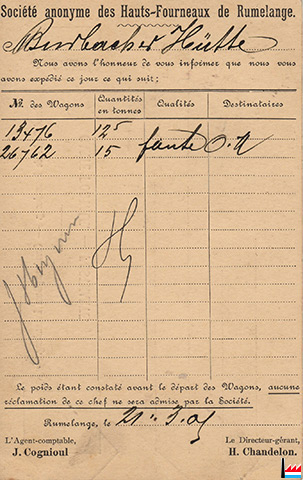 Société anonyme des Hauts-Fourneaux de Rumelange.
Burbacher Hütte
Nous avons l'honneur de vous informer que nous vous
avons expédié ce jour ce qui suit;
Nos. des Wagons Quantités en tonnes Qualités Destinataires
13476 12⁵
26762 15 fonte
Le poids étant constaté avant le départ des Wagons, aucune
réclamation de ce chef ne sera admise par la Société.
Rumelange, le 21. 3. 05
L'Agent-comptable, Le Directeur-gérant,
J. Cognioul H. Chandelon.